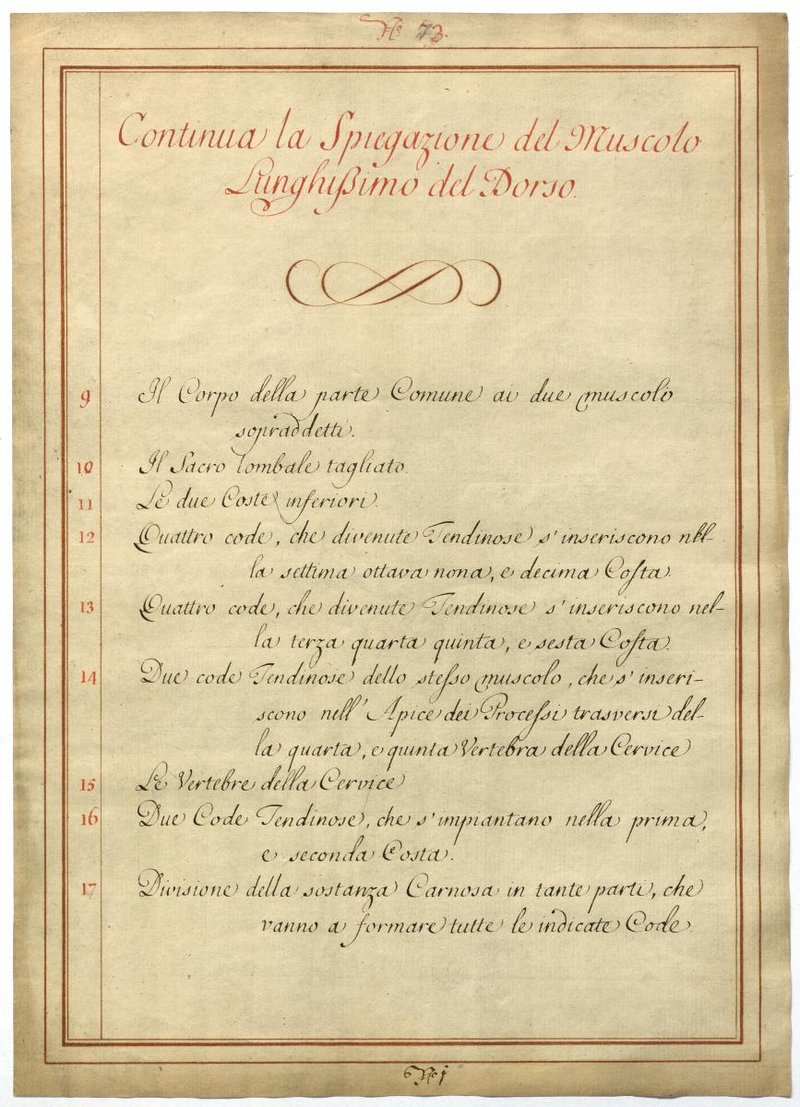 No 73.
Continua la Spiegazione del Muscolo
Lunghißimo del Dorso.
9 Il Corpo della parte Comune ai due muscoli
sopraddetti.
10 Il Sacro lombale tagliato.
11 Le due Coste inferiori.
12 Quattro code, che divenute Tendinose s'inseriscono nel-
la settima ottava nona, e decima Costa.
13 Quattro code, che divenute Tendinose s'inseriscono nel-
la terza quarta quinta, e sesta Costa.
14 Due code Tendinose dello stesso muscolo, che s'inseri-
scono nell'Apice dei Processi trasversi del-
la quarta, e quinta Vertebra della Cervice
15 Le Vertebre della Cervice
16 Due Code Tendinose, che s'impiantano nella prima,
e seconda Costa.
17 Divisione della sostanza Carnosa in tante parti, che
vanno a formare tutte le indicate Code.